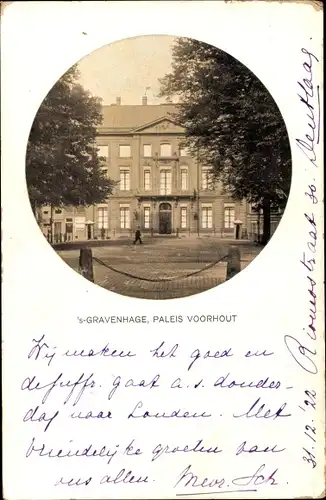 's-GRAVENHAGE, PALEIS VOORHOUT
Wij maken het goed en
de juffr. gaat a.s. donder-
dag naar Londen. Met
vriendelijke groeten van
ons allen. Mevr. Sch.
31.12.'22